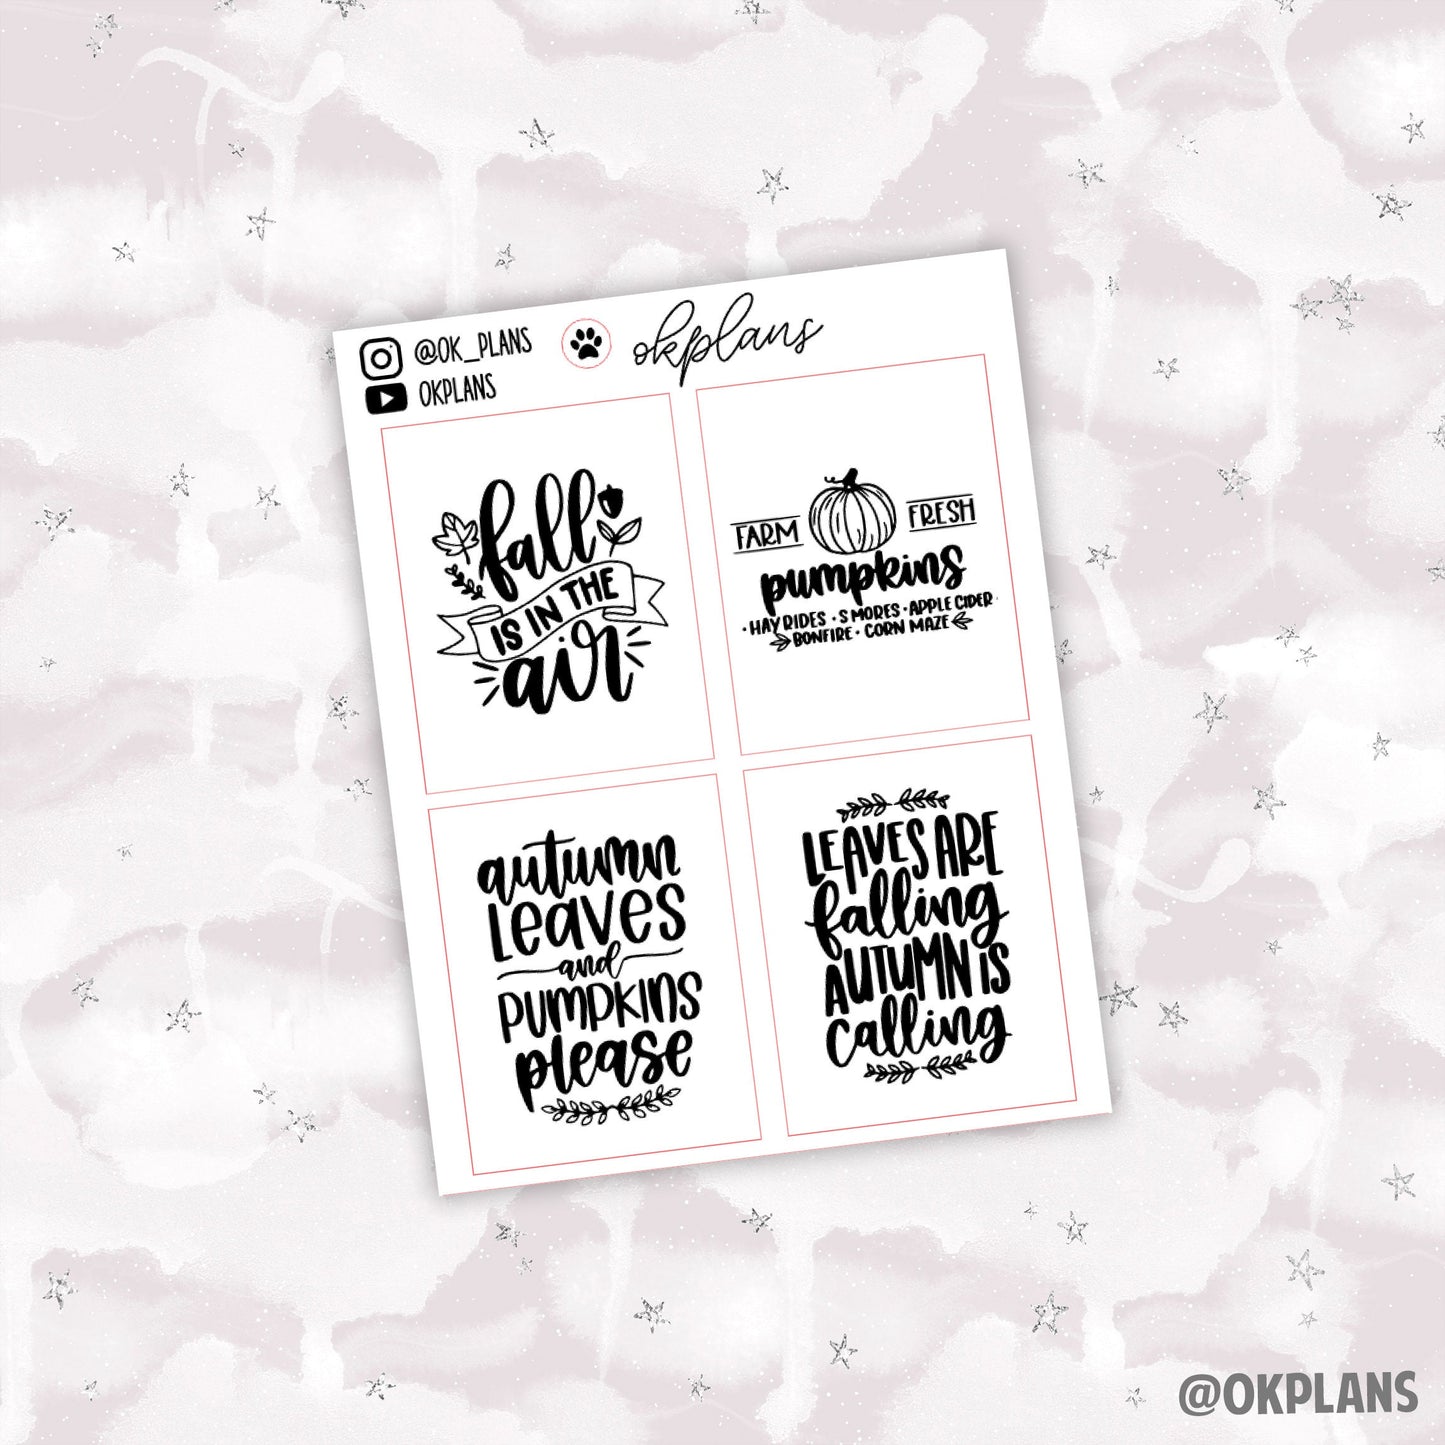 @OK_PLANS
OKPLANS
okplans
fall
IS IN THE
air
FARM
FRESH
pumpkins
·HAY RIDES ·S MORES·APPLE CIDER·
BONFIRE· CORN MAZE
autumn
LEAVES
and
PUMPKINS
please
LEAVES ARE
falling
AUTUMN IS
calling
@OKPLANS